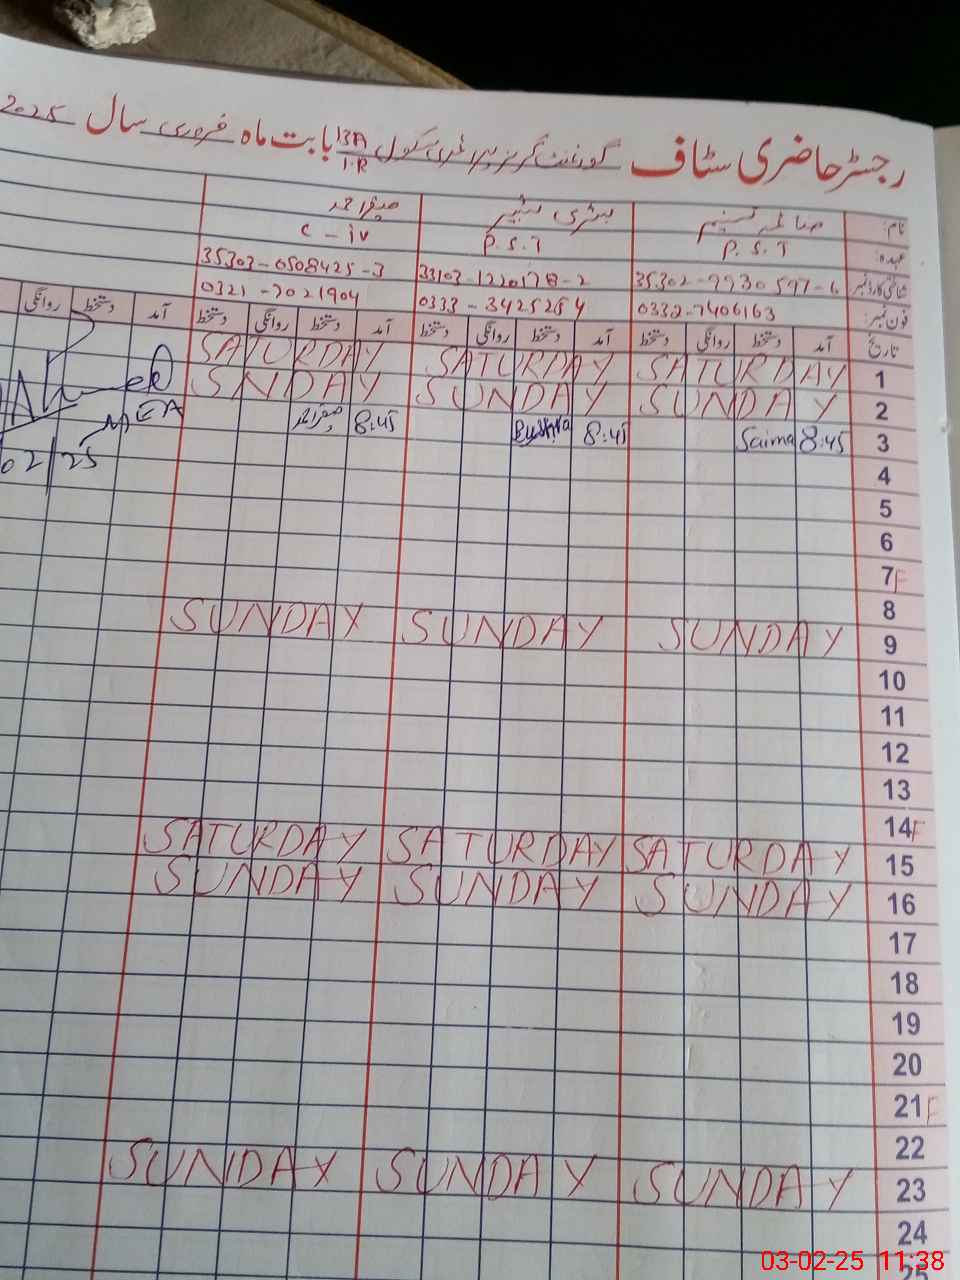 رجسٹر حاضری سٹاف گورنمنٹ گرلز پرائمری سکول 13A/1.R بابت ماہ فروری سال 2025
نام: صائمہ تسنیم بشریٰ بشیر صفدر احمد
عہدہ: P.S.T P.S.T C-iv
شناختی کارڈ نمبر 35302-9930597-6 33103-1220178-2 35303-0508425-3
فون نمبر: 0332-7406163 0333-3425254 0321-7021904
تاریخ آمد دستخط روانگی دستخط آمد دستخط روانگی دستخط آمد دستخط روانگی دستخط آمد دستخط روانگی
1 SATURDAY SATURDAY SATURDAY
2 SUNDAY SUNDAY SNDAY
3 8:45 Saima 8:45 Bushra 8:45 صفدر احمد
MEA
02/25
4
5
6
7F
8
9 SUNDAY SUNDAY SUNDAY
10
11
12
13
14F
15 SATURDAY SATURDAY SATURDAY
16 SUNDAY SUNDAY SUNDAY
17
18
19
20
21F
22
23 SUNDAY SUNDAY SUNDAY
24
25
03-02-25 11:38